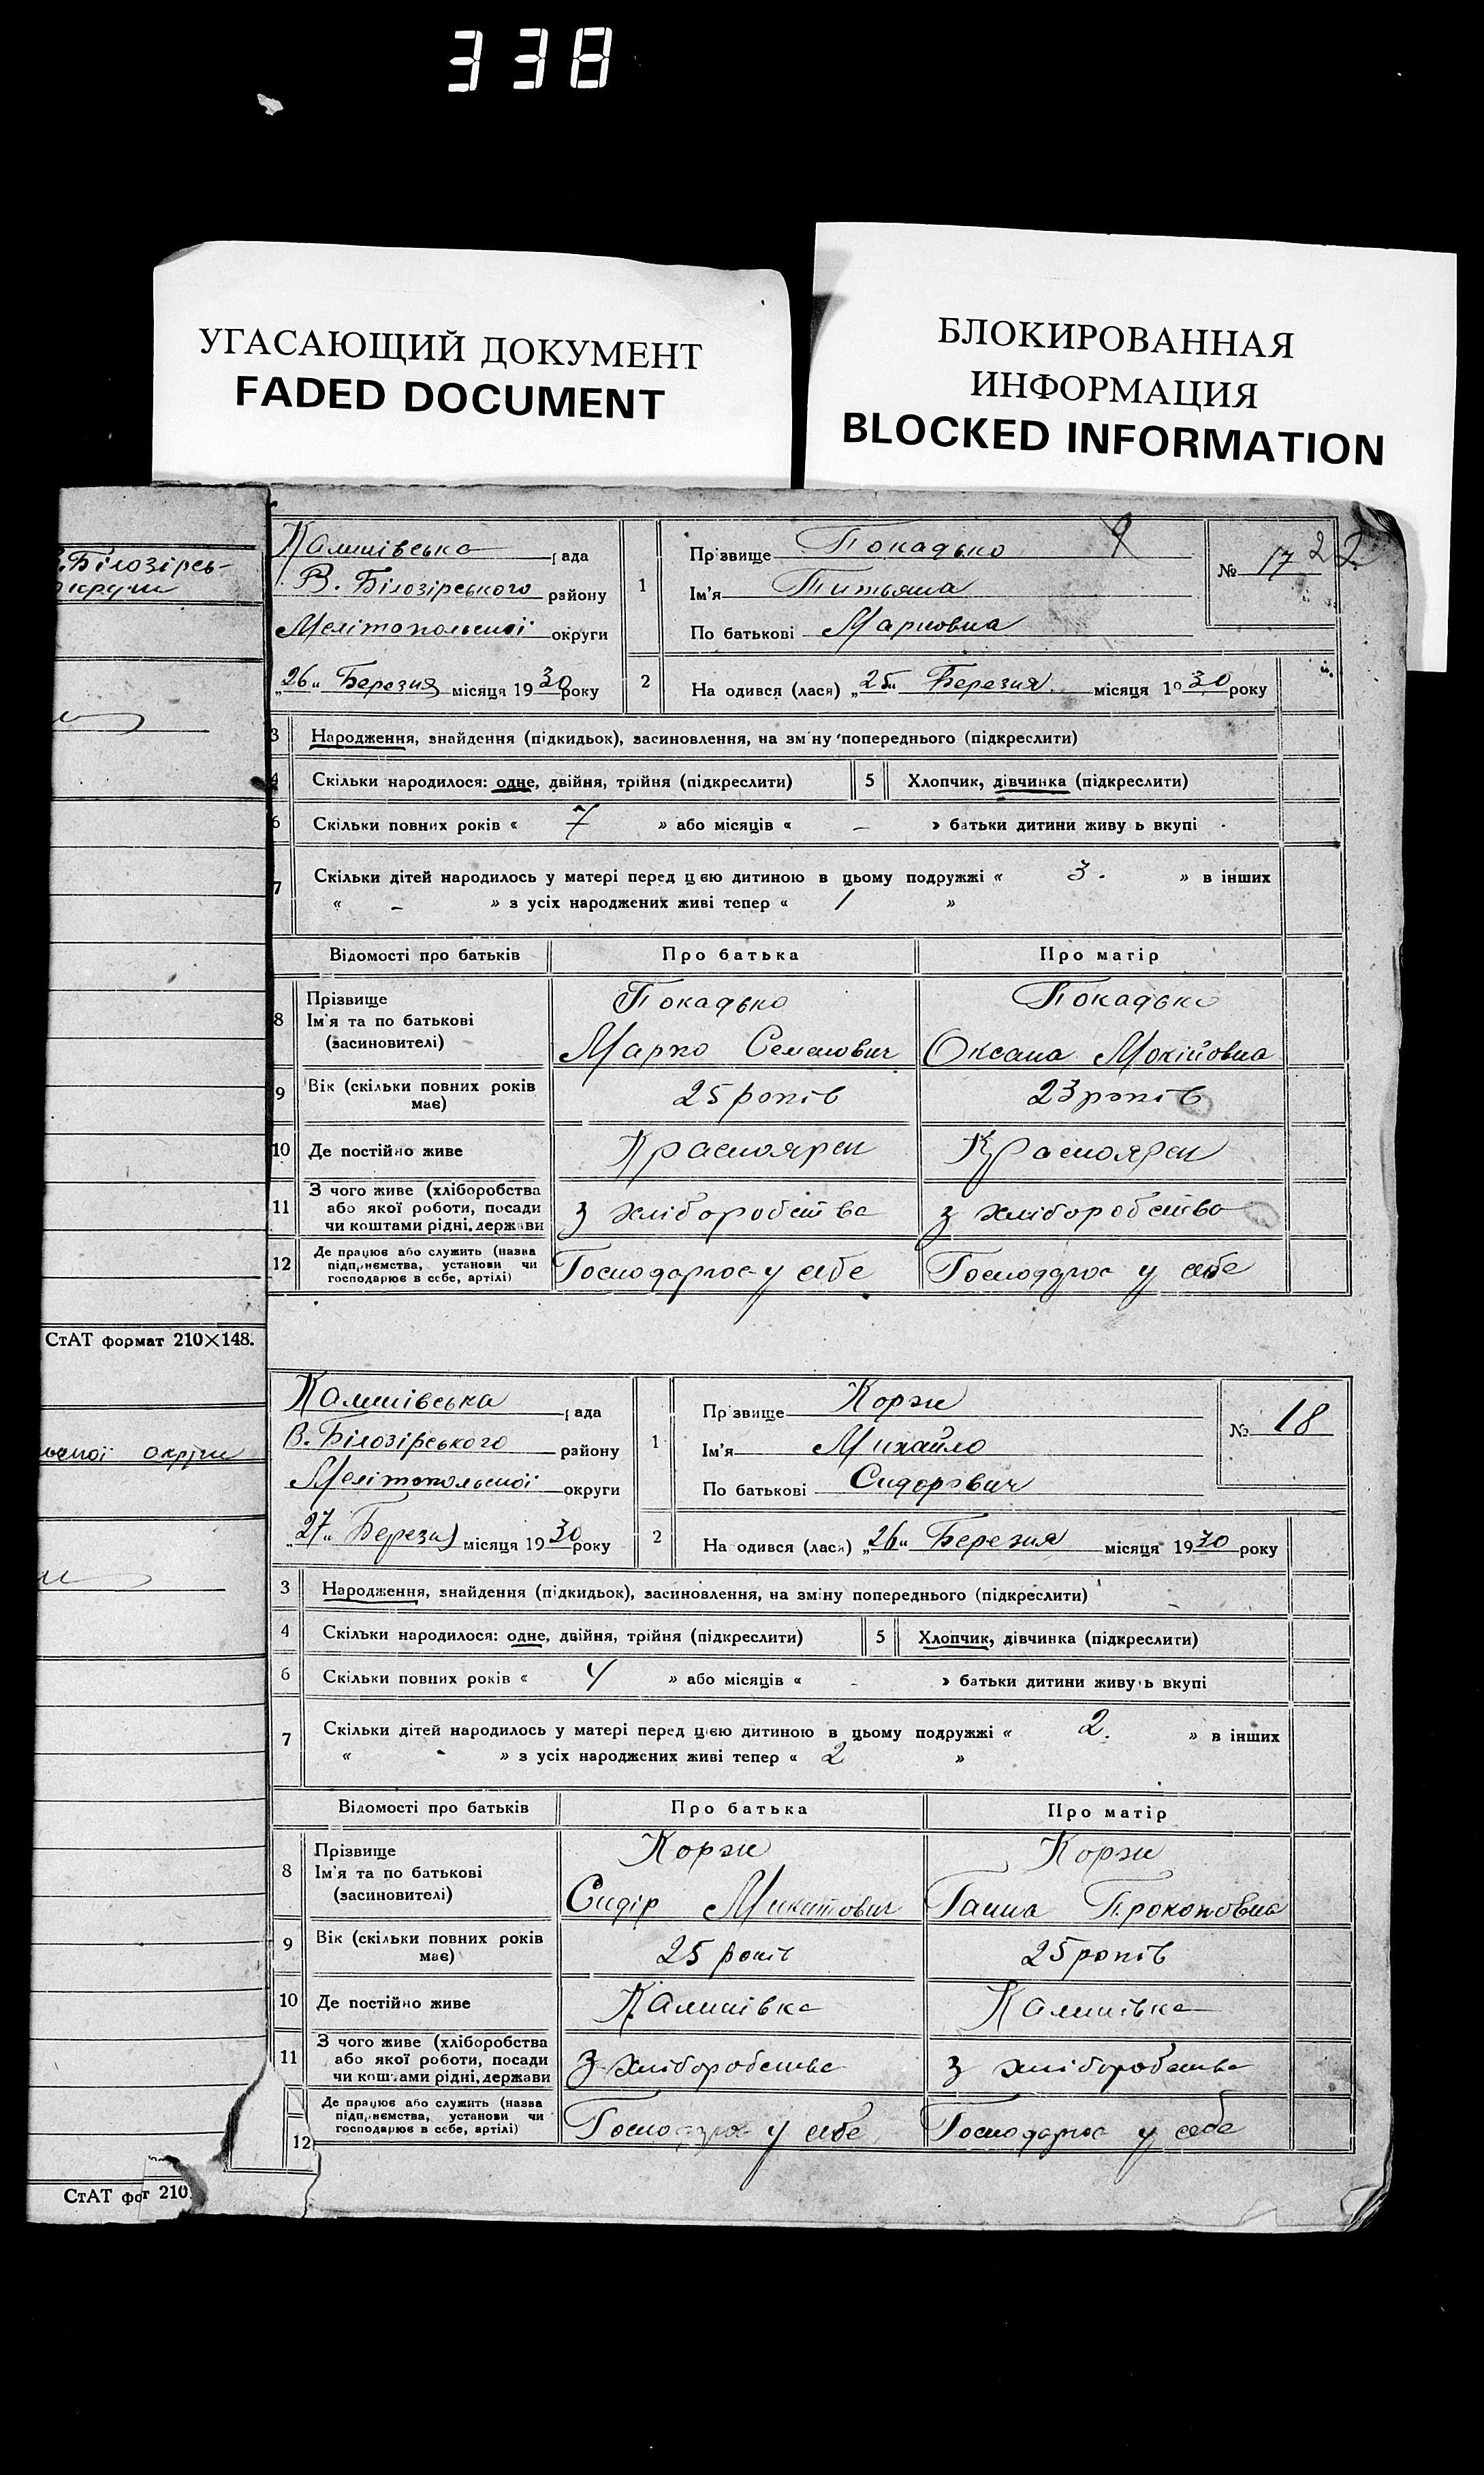 338
УГАСАЮЩИЙ ДОКУМЕНТ
FADED DOCUMENT
БЛОКИРОВАННАЯ
ИНФОРМАЦИЯ
BLOCKED INFORMATION
В. Білозірсь-
округи
СтАТ формат 210×148.
округи
СтАТ фо т 210
Калинівська рада
В. Білозірського району
Мелітопольської округи
„26“ Березня місяця 1930 року
1
Прізвище Покадько
Ім'я Титьяна
По батькові Марковна
№ 17
22
2
На одився (лася) „25“ Березня місяця 1930 року
3 Народження, знайдення (підкидьок), засиновлення, на зміну попереднього (підкреслити)
4 Скільки народилося: одне, двійня, трійня (підкреслити) 5 Хлопчик, дівчинка (підкреслити)
6 Скільки повних років « 7 » або місяців « – » батьки дитини живу ь вкупі
7 Скільки дітей народилось у матері перед цією дитиною в цьому подружжі « 3. » в інших
« – » з усіх народжених живі тепер « 1 »
Відомості про батьків Про батька Про матір
8 Прізвище Покадько Покадько
Ім'я та по батькові
(засиновителі) Марко Семенович Оксана Мокійовна
9 Вік (скільки повних років має) 25 років 23 років
10 Де постійно живе Красноярск Красноярск
11 З чого живе (хліборобства
або якої роботи, посади
чи коштами рідні, держави з хліборобства з хліборобства
12 Де працює або служить (назва
підприємства, установи чи
господарює в себе, артілі) Господарює у себе Господарює у себе
Калинівська рада
В. Білозірського району
Мелітопольської округи
„27“ Березня місяця 1930 року
1
Прізвище Корж
Ім'я Михайло
По батькові Сидорович
№ 18
2
На одився (лася) „26“ Березня місяця 1930 року
3 Народження, знайдення (підкидьок), засиновлення, на зміну попереднього (підкреслити)
4 Скільки народилося: одне, двійня, трійня (підкреслити) 5 Хлопчик, дівчинка (підкреслити)
6 Скільки повних років « 4 » або місяців « - » батьки дитини живу ь вкупі
7 Скільки дітей народилось у матері перед цією дитиною в цьому подружжі « 2. » в інших
« - » з усіх народжених живі тепер « 2 »
Відомості про батьків Про батька Про матір
8 Прізвище Корж Корж
Ім'я та по батькові
(засиновителі) Сидір Микитович Ганна Прокоповна
9 Вік (скільки повних років має) 25 років 25 років
10 Де постійно живе Калинівка Калинівка
11 З чого живе (хліборобства
або якої роботи, посади
чи коштами рідні, держави З хліборобства з хліборобства
12 Де працює або служить (назва
підприємства, установи чи
господарює в себе, артілі) Господарює у себе Господарює у себе